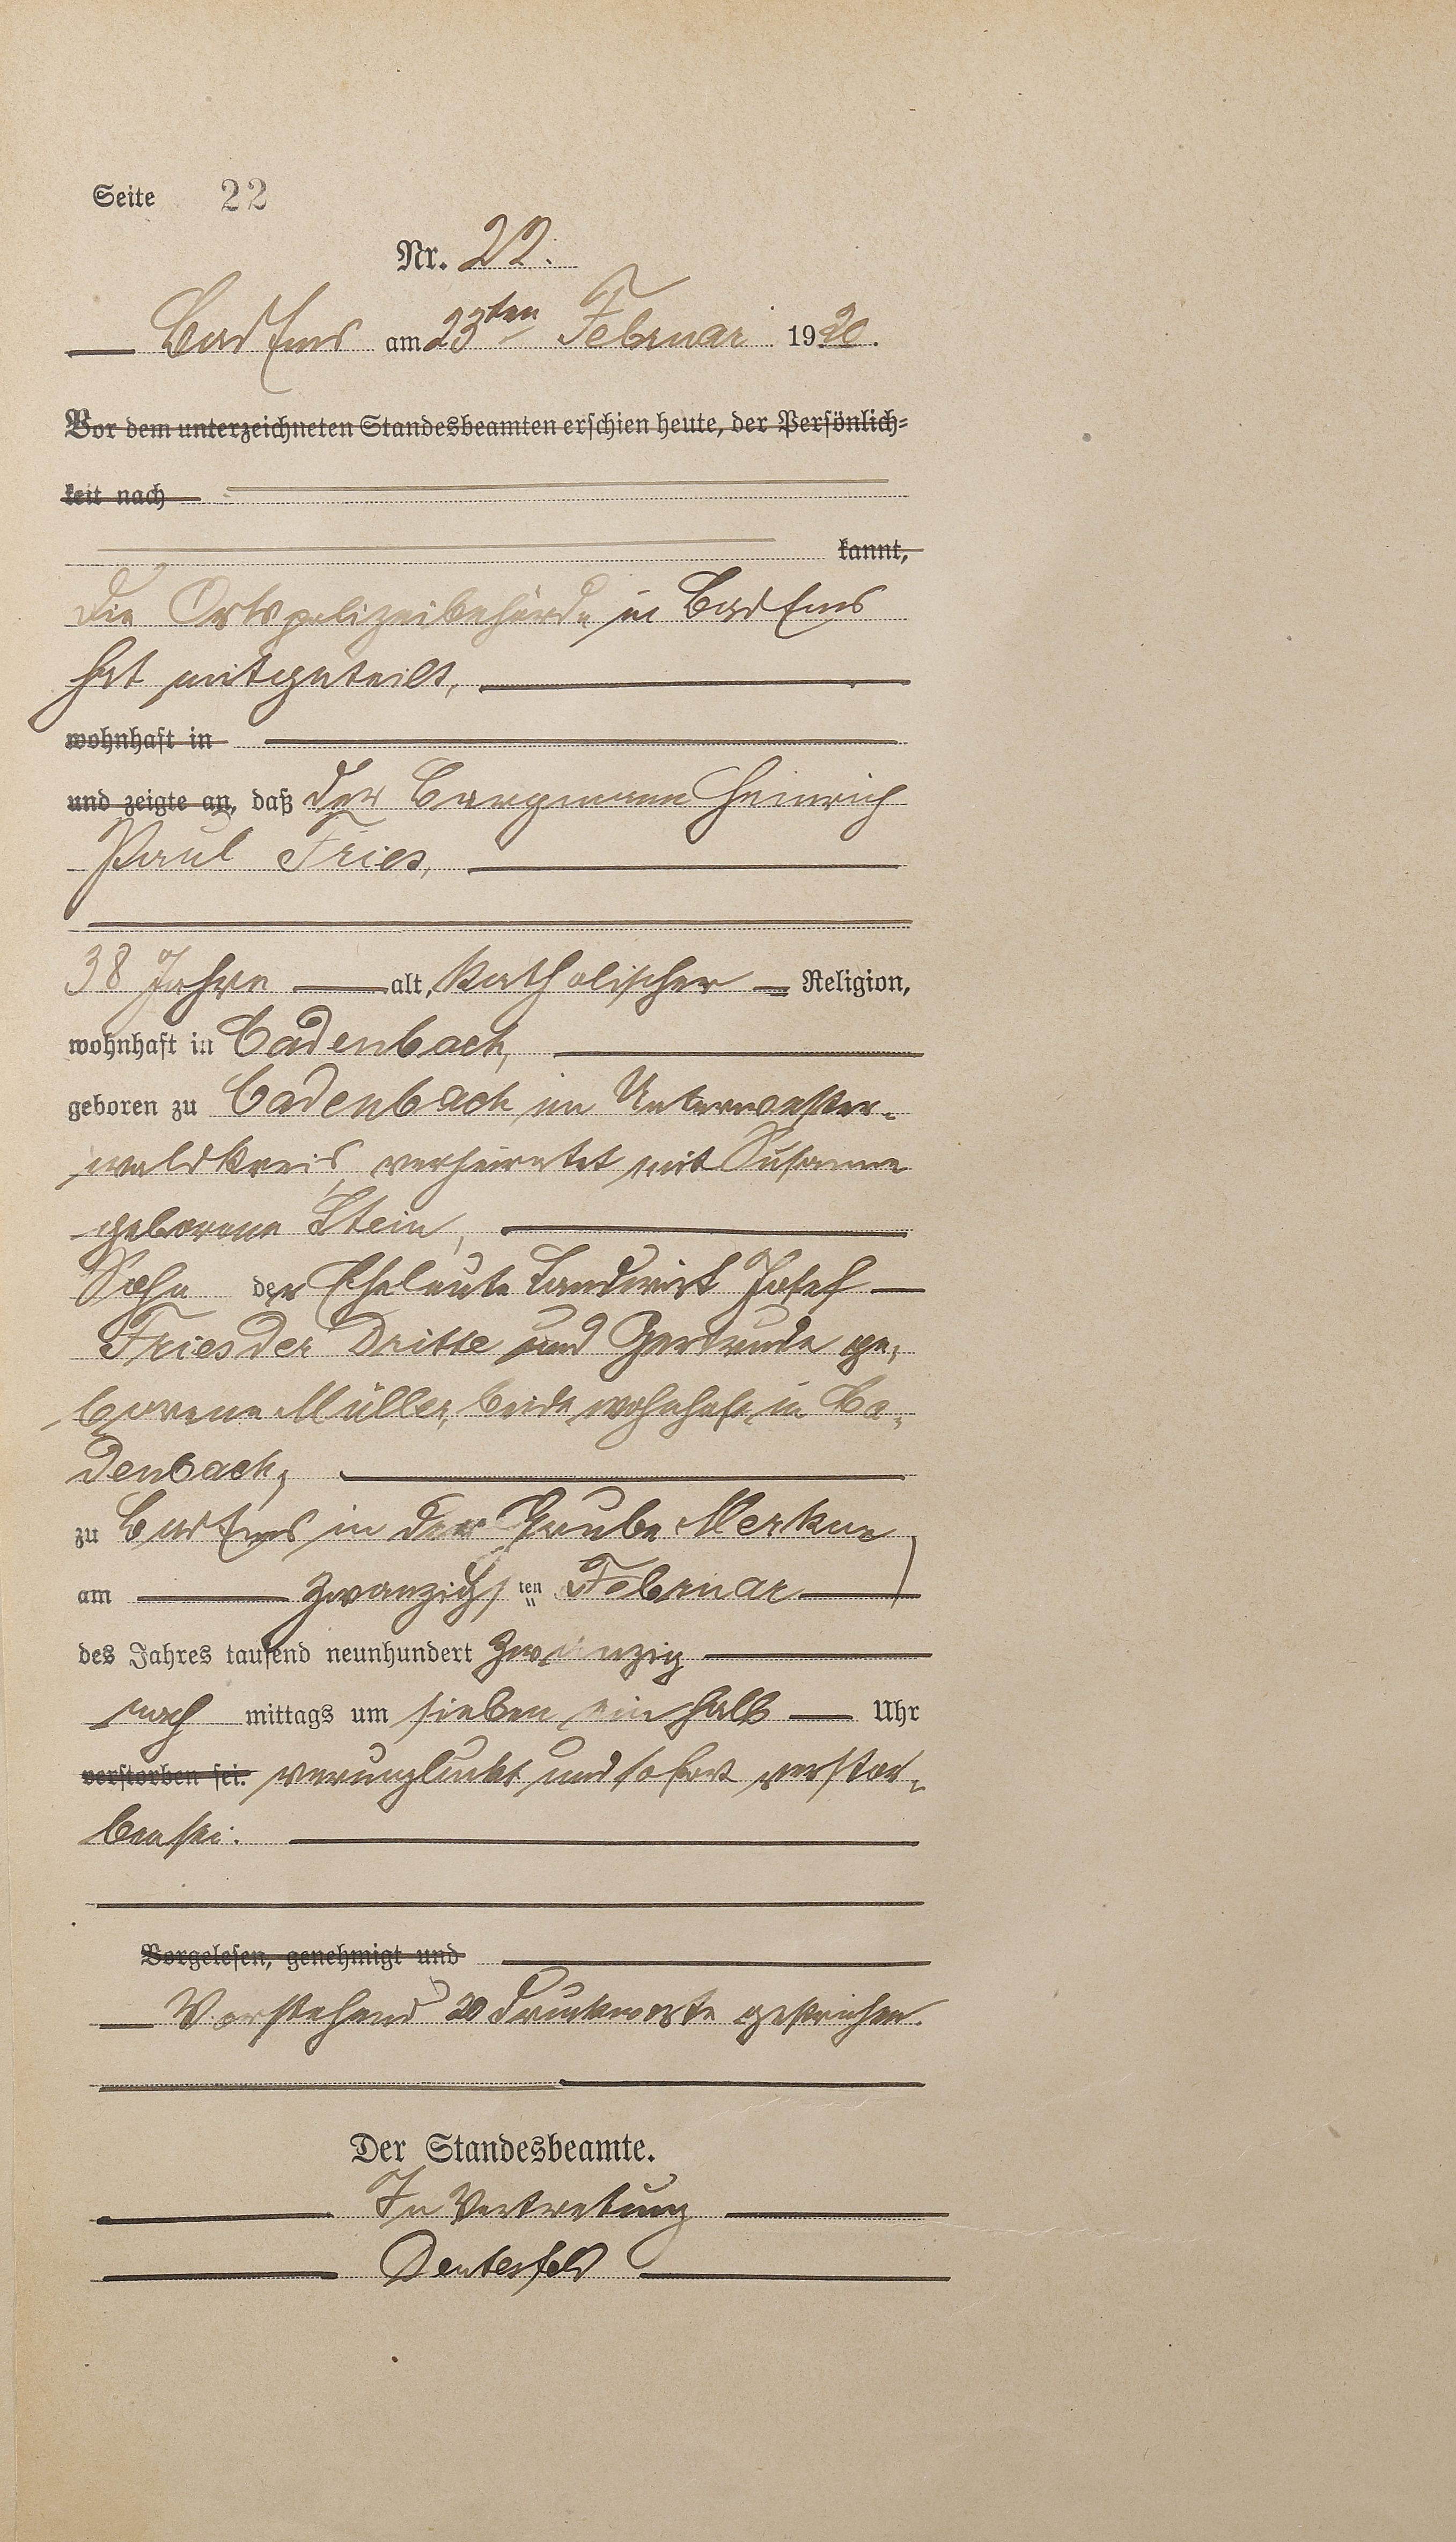 Seite 22
Nr. 22.
Bad Ems am 23ten Februar 1920.
Vor dem unterzeichneten Standesbeamten erschien heute, der Persönlich-
keit nach
kannt,
Die Ortspolizeibehörde in Bad Ems
hat mitgeteilt,
wohnhaft in
und zeigte an, daß der Bergmann Heinrich
Paul Fries,
38 Jahre alt, katholischer Religion,
wohnhaft in Cadenbach,
geboren zu Cadenbach im Unterwester-
waldkreis, verheiratet mit Susanne
geborene Stein,
Sohn der Eheleute Landwirt Josef
Fries der Dritte und Gertrude ge-
borene Müller, beide wohnhaft in Ca-
denbach,
zu Bad Ems in der Grube Merkur
am zwanzigsten Februar
des Jahres tausend neunhundert zwanzig
nach mittags um sieben ein halb Uhr
verstorben sei. verunglückt und sofort verstor-
ben sei.
Vorgelesen, genehmigt und
Vorstehend 20 Druckworte gestrichen.
Der Standesbeamte.
In Vertretung